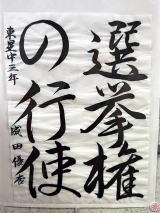 選挙権
の行使
東星中三年
成田優杏